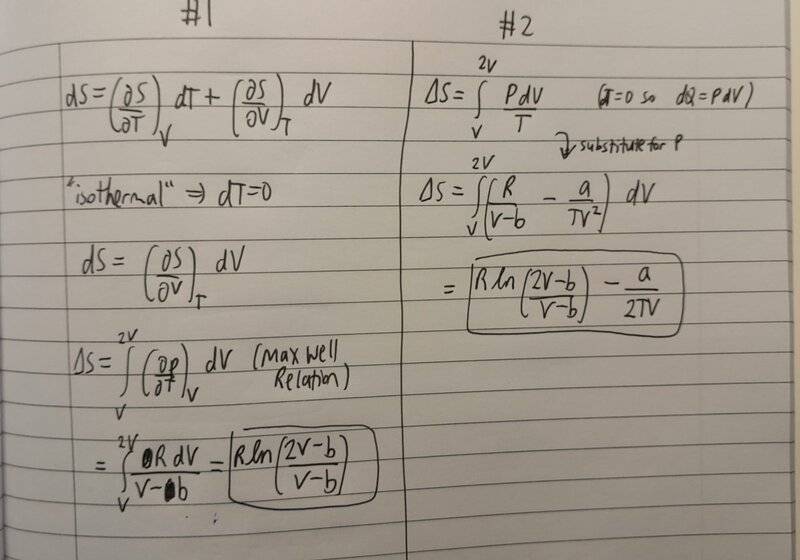 #1
dS = (∂S/∂T)_V dT + (∂S/∂V)_T dV
"isothermal" ⇒ dT=0
dS = (∂S/∂V)_T dV
ΔS = ∫_V^{2V} (∂p/∂T)_V dV (Maxwell
Relation)
= ∫_V^{2V} R dV/(V-b) = R ln((2V-b)/(V-b))
#2
ΔS = ∫_V^{2V} PdV/T (dT=0 so dQ=PdV)
↓ substitute for P
ΔS = ∫_V^{2V} (R/(V-b) - a/(TV²)) dV
= R ln((2V-b)/(V-b)) - a/(2TV)